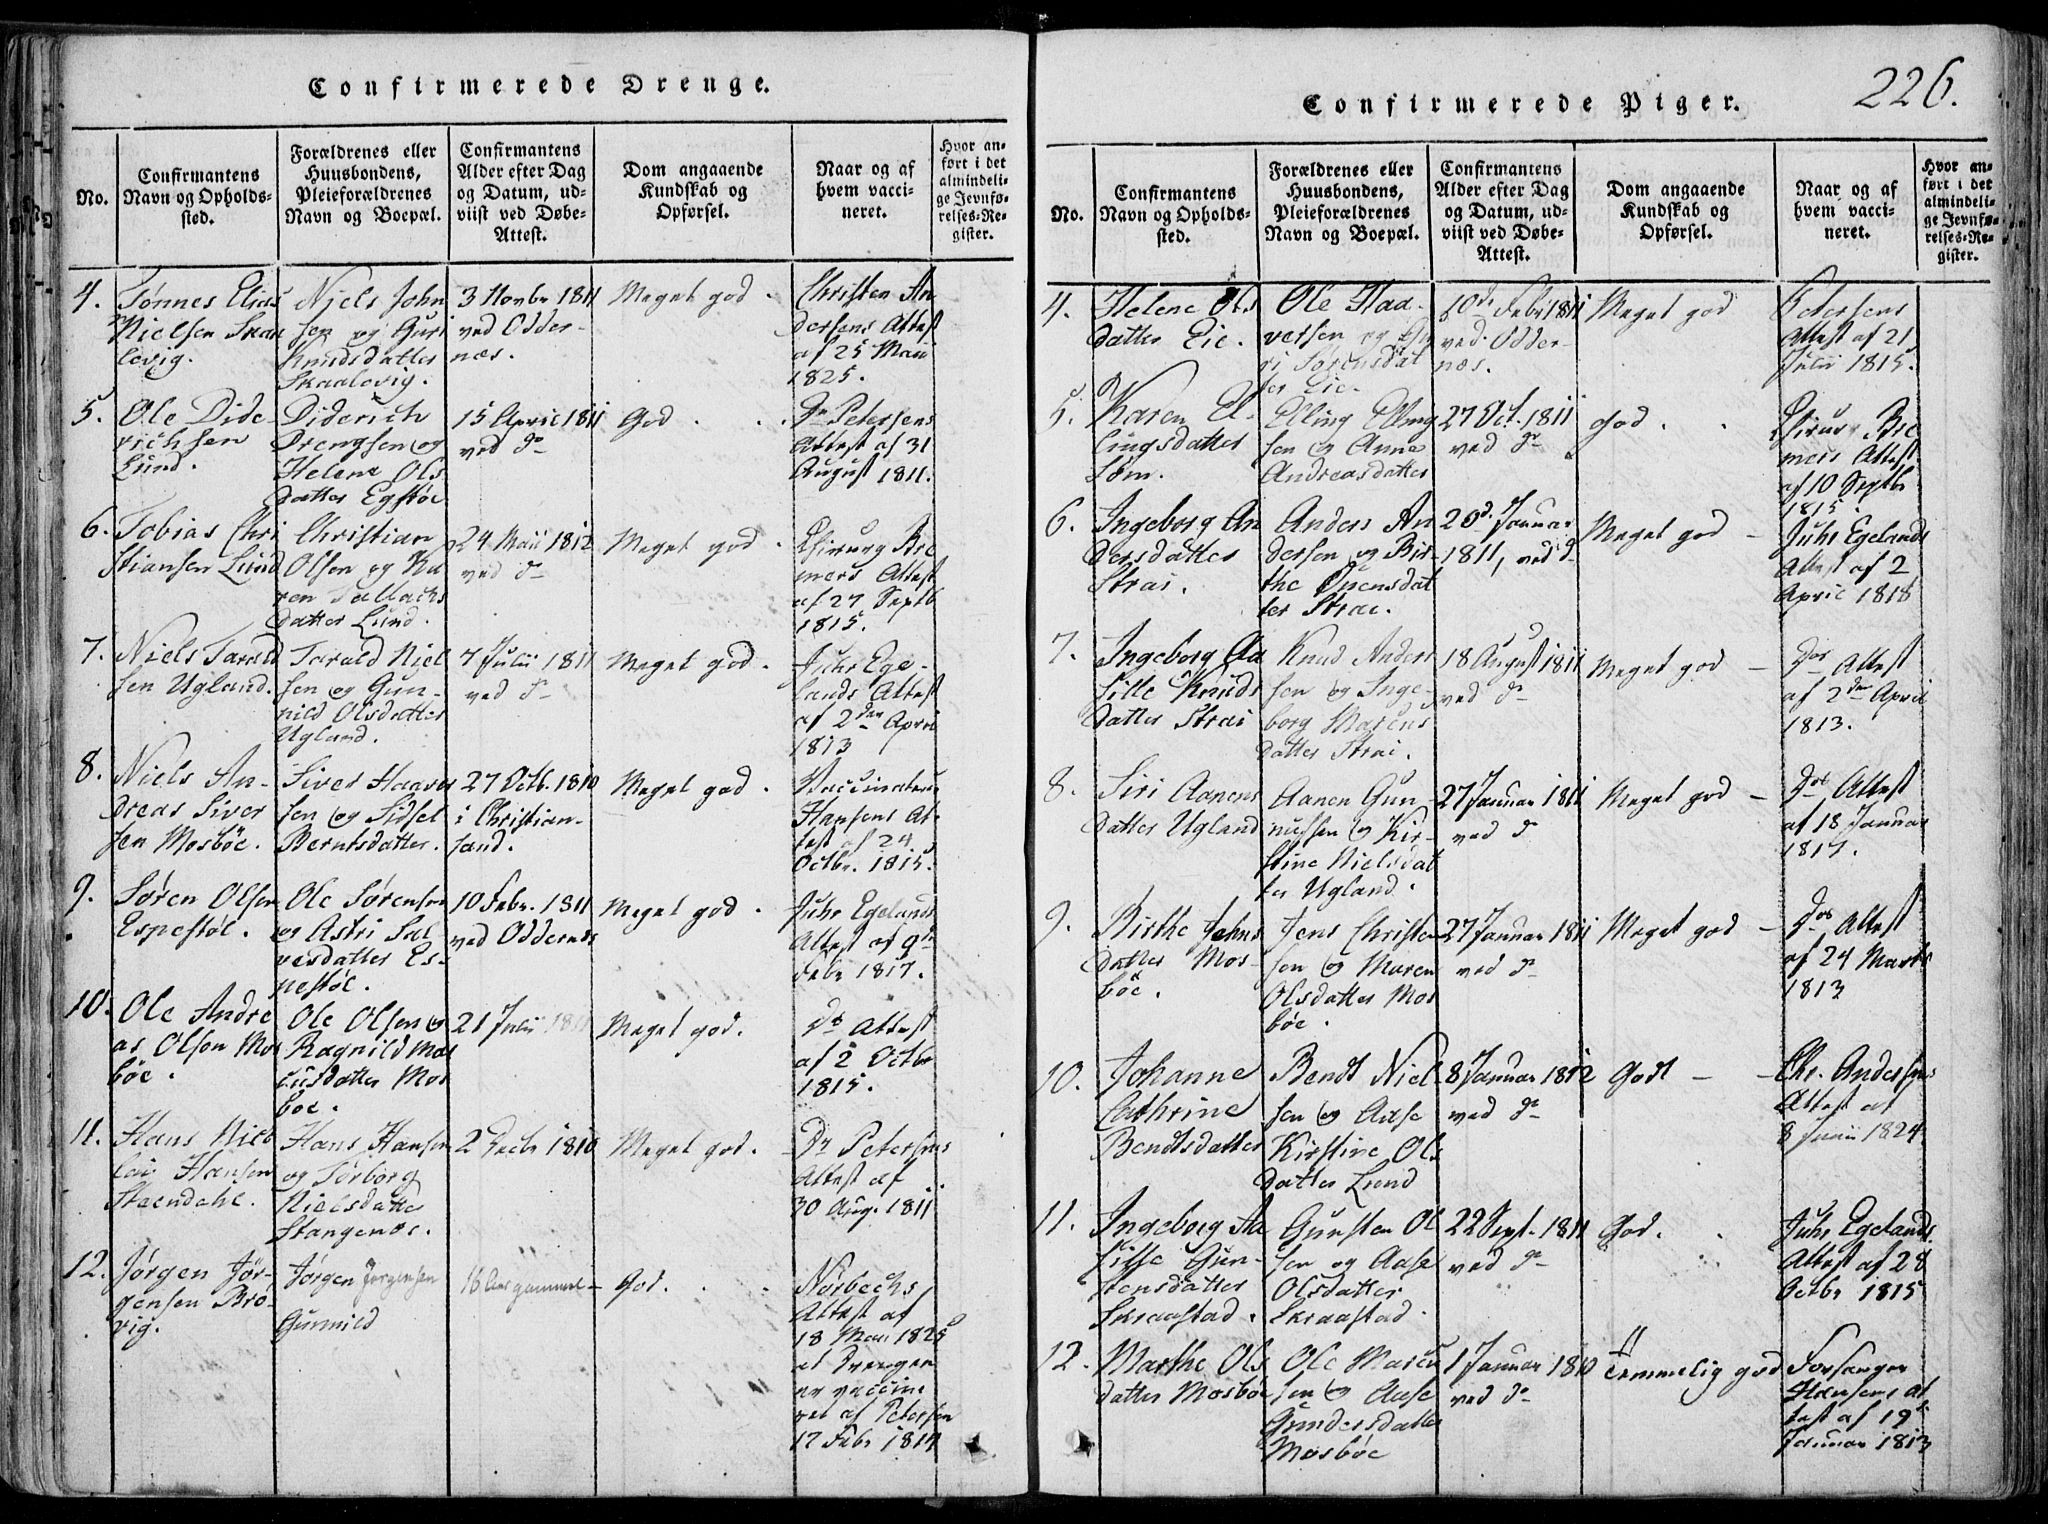 Confirmerede Drenge.
No.
Confirmantens
Navn og Opholds-
sted.
Forældrenes eller
Huusbondens,
Pleieforældrenes
Navn og Boepæl.
Confirmantens
Alder efter Dag
og Datum, ud-
viist ved Døbe-
Attest.
Dom angaaende
Kundskab og
Opførsel.
Naar og af
hvem vacci-
neret.
Hvor an-
ført i det
almindeli-
ge Jevnfø-
relses-Re-
gister.
4.
Tønnes Elias
Nielsen Skaa
levig.
Niels John
sen og Guri
Knudsdatter
Skaalevig.
3 Novbr 1811
ved Odder-
næs.
Meget god.
Christen An
dersens Attest
af 25 Mai
1825.
5.
Ole Dide-
richsen
Lund.
Diderich
Drengsen og
Helene Ols
datter Egstøe
15 April 1811
ved do
God
Dr Petersens
Attest af 31
August 1811.
6.
Tobias Chri
stiansen Lund
Christian
Olsen og Ka
ren Tallachs
datter Lund.
24 Maii 1812
ved do
Meget god.
Chirurg Bre
mers Attest
af 27 Septb
1815.
7.
Niels Tarald
sen Ugland.
Tarald Niel
sen og Gun-
nild Olsdatter
Ugland.
7 Julii 1811
ved do
Meget god.
Juhr Ege-
lands Attest
af 2den April
1813
8.
Niels An-
dreas Siver
sen Mosbøe.
Siver Haaver
sen og Sidsel
Berntsdatter.
27 Octb. 1810
i Christian-
sand.
Meget god.
Vaccinateur
Hansens At-
test af 24
Octbr. 1815.
9.
Søren Olsen
Espestøl.
Ole Sørensen
og Astri Sal
vesdatter Es-
pestøl.
10 Febr. 1811
ved Oddernæs
Meget god.
Juhr Egelands
Attest af 9de
Febr 1817.
10.
Ole Andre
as Olsen Mos
bøe.
Ole Olsen og
Ragnild Mar
cusdatter Mos
boe.
21 Julii 1811
Meget god.
Ds Attest
af 2 Octbr
1815.
11.
Hans Nico
lai Hansen
Steendahl.
Hans Hansen
og Tørborg
Nielsdatter
Stangenæs.
2 Decbr 1810
Meget god.
Dr Petersens
Attest af
30 Aug. 1811
12.
Jørgen Jør-
gensen Brø-
vig.
Jørgen Jørgensen
Gunnild
16 Aar gammel
God.
Nørbechs
Attest af
18 Mai 1825
at Drengen
er vaccine
ret af Petersen
17 Febr 1814
226.
Confirmerede Piger.
No.
Confirmantens
Navn og Opholds-
sted.
Forældrenes eller
Huusbondens,
Pleieforældrenes
Navn og Boepæl.
Confirmantens
Alder efter Dag
og Datum, ud-
viist ved Døbe-
Attest.
Dom angaaende
Kundskab og
Opførsel.
Naar og af
hvem vacci-
neret.
Hvor an-
ført i det
almindeli-
ge Jevnfø-
relses-Re-
gister.
4.
Helene Ols
datter Eie.
Ole Haa-
versen og Gu
ri Sørensdat
ter Eie.
10de Febr 1811
ved Odder-
næs.
Meget god
Petersens
Attest af 21
Julii 1815.
5.
Karen El-
lingsdatter
Søm.
Elling Elling
sen og Anne
Andreasdatter
27 Oct. 1811
ved do
God.
Chirurg Bre
mers Attest
af 10 Septbr
1815.
6.
Ingeborg An
dersdatter
Strai.
Anders An
dersen og Bir-
the Onensdat
ter Strai.
20d. Januar
1811, ved do
Meget god
Juhr Egelands
Attest af 2
April 1818
7.
Ingeborg Aa
sille Knuds
datter Strai
Knud Anders
sen og Inge-
borg Marcus
datter Strai.
18 August 1811
ved do
Meget god
Ds Attest
af 2den April
1813.
8.
Siri Aanens
datter Ugland
Aanen Gun-
nufsen og Kir-
stine Nielsdat
ter Ugland.
27 Januar 1811
ved do
Meget god
Ds Attest
af 18 Januar
1817.
9.
Birthe Jehns
datter Mos-
bøe.
Jens Christen
sen og Maren
Olsdatter Mos
bøe.
27 Januar 1811
ved do
Meget god
Ds Attest
af 24 Marts
1813
10.
Johanne
Cathrine
Bendtsdatter
Bendt Niel
sen og Aase
Kirstine Ols
datter Lund
8 Januar 1812
ved do
Godt
Chr. Andersens
Attest af
8 Junii 1824
11.
Ingeborg Aa
sille Gun-
stensdatter
Skraastad.
Gunsten Ol
sen og Aase
Olsdatter
Skraastad.
22 Sept. 1811
ved do
God.
Juhr Egelands
Attest af 28
Octbr 1815
12.
Marthe Ols
datter Mosbøe
Ole Marcu
sen og Aase
Gundersdatter
Mosbøe
1 Januar 1810
ved do
Temmelig god
Forsanger
Hansens at
test af 19de
Januar 1813